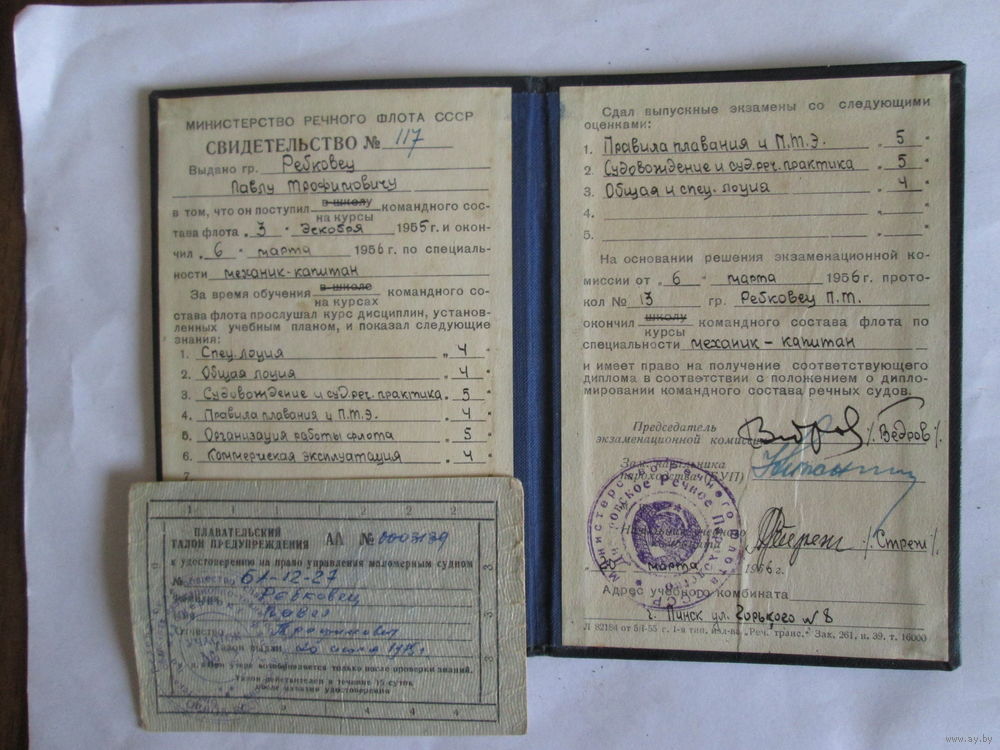 МИНИСТЕРСТВО РЕЧНОГО ФЛОТА СССР
СВИДЕТЕЛЬСТВО № 117
Выдано гр. Ребковец
Павлу Трофимовичу
в том, что он поступил в школу командного сос-
на курсы
тава флота „3" декабря 1955 г. и окон-
чил „6" марта 1956 г. по специаль-
ности механик-капитан
За время обучения в школе командного со-
на курсах
става флота прослушал курс дисциплин, установ-
ленных учебным планом, и показал следующие
знания:
1. Спец. лоция „4"
2. Общая лоция „4"
3. Судовождение и суд. реч. практика. 5"
4. Правила плавания и П.Т.Э. „4"
5. Организация работы флота „5"
6. Коммерческая эксплуатация „4"
7
Сдал выпускные экзамены со следующими
оценками:
1. Правила плавания и П.Т.Э. „5"
2. Судовождение и суд. реч. практика „5"
3. Общая и спец. лоция „4"
4.
5.
На основании решения экзаменационной ко-
миссии от „6" марта 1956 г. прото-
кол № 13 гр. Ребковец П.Т.
окончил школу командного состава флота по
курсы
специальности механик - капитан
и имеет право на получение соответствующего
диплома в соответствии с положением о дипло-
мировании командного состава речных судов.
Председатель
экзаменационной комиссии /Ведров/.
Зам. начальника
пароходства (БУП)
/Стреж/.
марта 1956 г.
Адрес учебного комбината
г. Пинск ул. Горького № 8
Л 82184 от 5/I-55 г. 1-я тип. изд-ва „Реч. транс." Зак. 261, н. 39, т. 16000
1 1 2 2
ПЛАВАТЕЛЬСКИЙ
ТАЛОН ПРЕДУПРЕЖДЕНИЯ АЛ № 0003139
к удостоверению на право управления маломерным судном
№ 61-12-27
Фамилия Ребковец
Имя Павел
Отчество Трофимович
Талон выдан
возобновляется только после проверки знаний.
Талон действителен в течение 15 суток
после изъятия удостоверения
4 4
www.ay.by